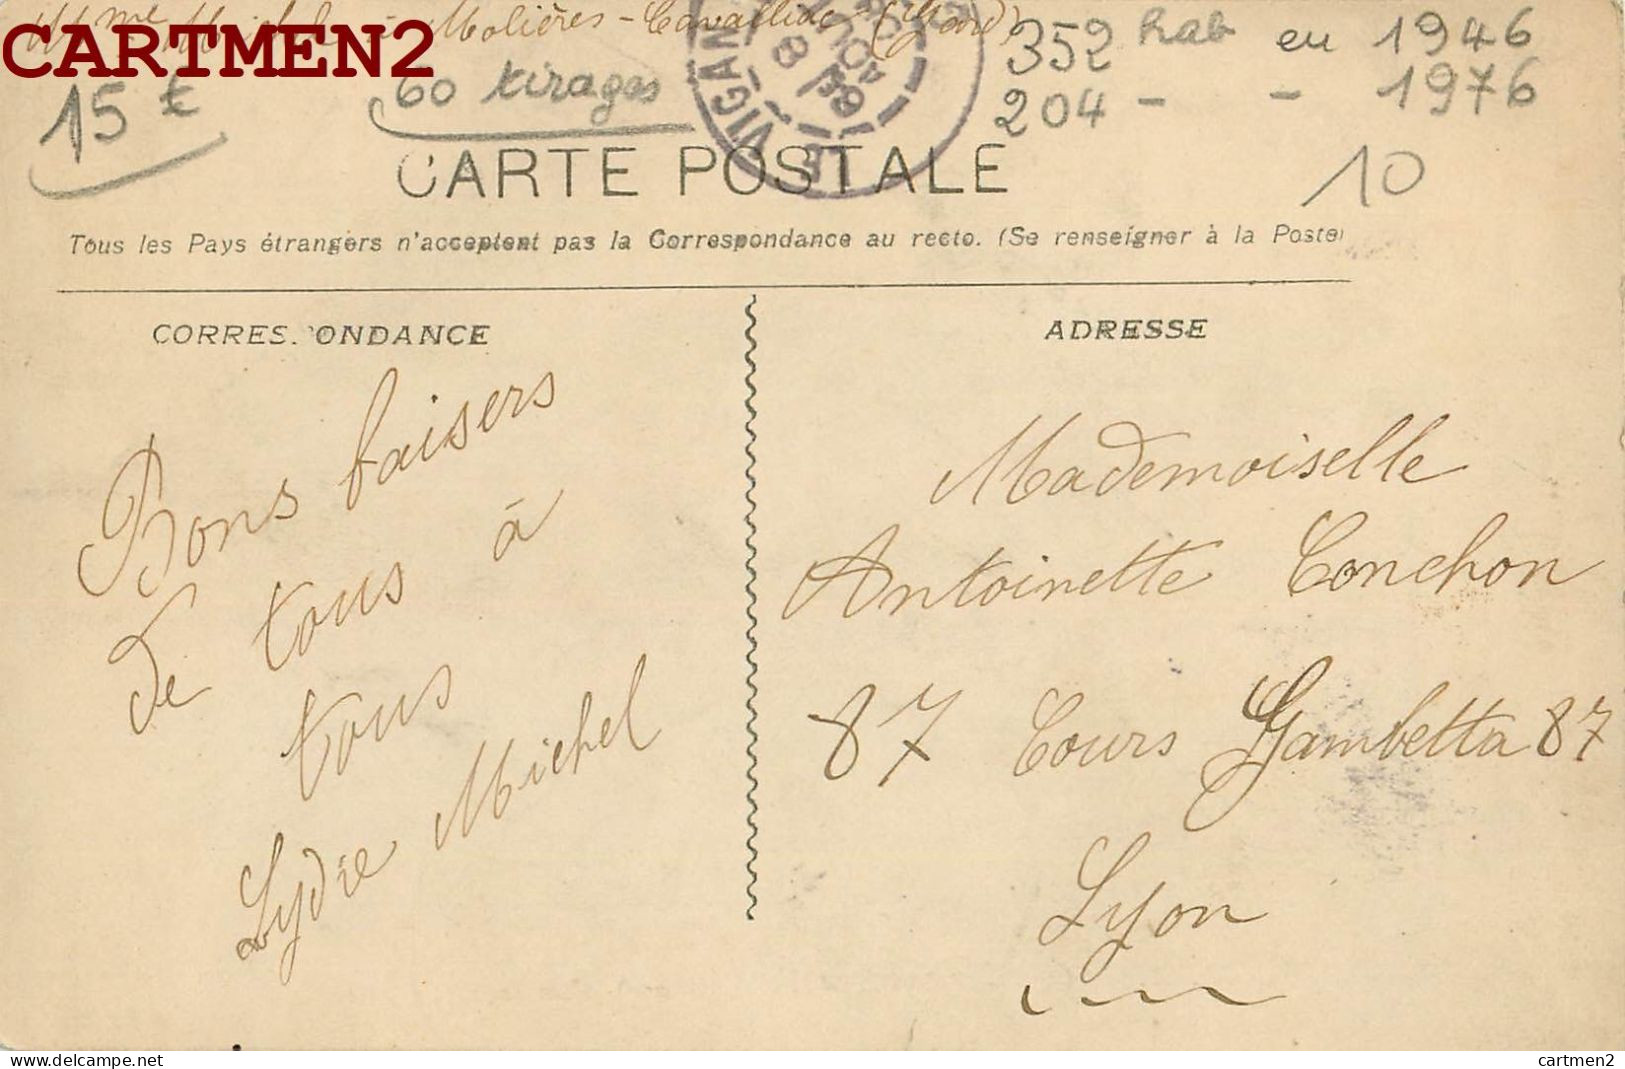 CARTMEN2
Mme Michel à Molières - Cavaillac (Gard)
352 hab en 1946
204 - - 1976
15 €
60 tirages
10
LE VIGAN
8
AOUT
GARD
CARTE POSTALE
Tous les Pays étrangers n'acceptent pas la Correspondance au recto. (Se renseigner à la Poste)
CORRES. 'ONDANCE
ADRESSE
Bons baisers
de tous à
tous
Lydie Michel
Mademoiselle
Antoinette Conchon
87 Cours Gambetta 87
Lyon
cartmen2 sur delcampe.net
cartmen2